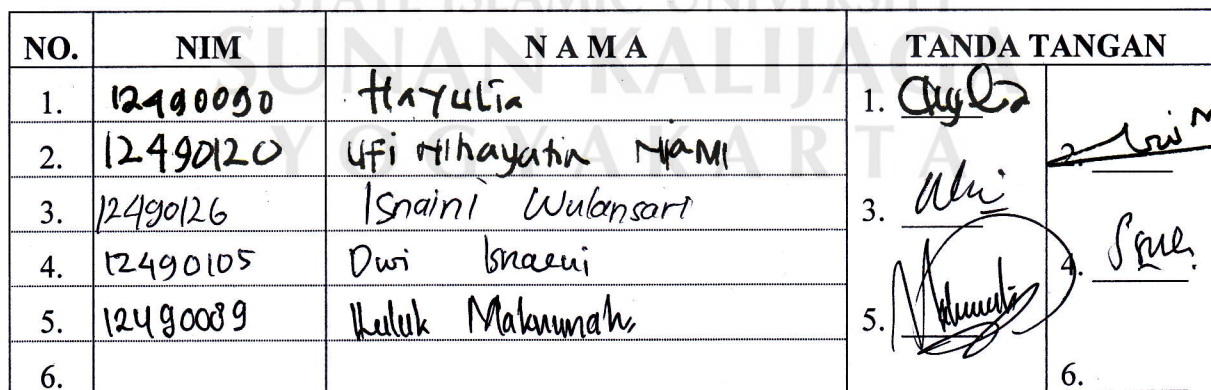 STATE ISLAMIC UNIVERSITY
SUNAN KALIJAGA
YOGYAKARTA
NO. NIM NAMA TANDA TANGAN
1. 12490090 Hayulia 1.
2. 12490120 Ufi Nihayatin 2.
3. 12490126 Isnaini Wulansari 3.
4. 12490105 Dwi Isnaeni 4.
5. 12490089 Luluk Maknunah, 5.
6. 6.